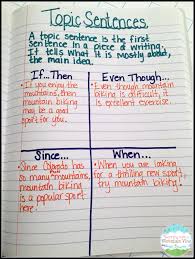 Topic Sentences
A topic sentence is the first
sentence in a piece of writing.
It tells what it is mostly about,
the main idea.
If...Then
• If you enjoy the
mountains, then mountain
biking may be a
great sport for you.
Even Though...
• Even though mountain
biking is difficult, it
is excellent exercise.
Since...
• Since Colorado has
so many mountains,
mountain biking is
a popular sport
here.
When...
• When you are looking
for a thrilling new sport,
try mountain biking!